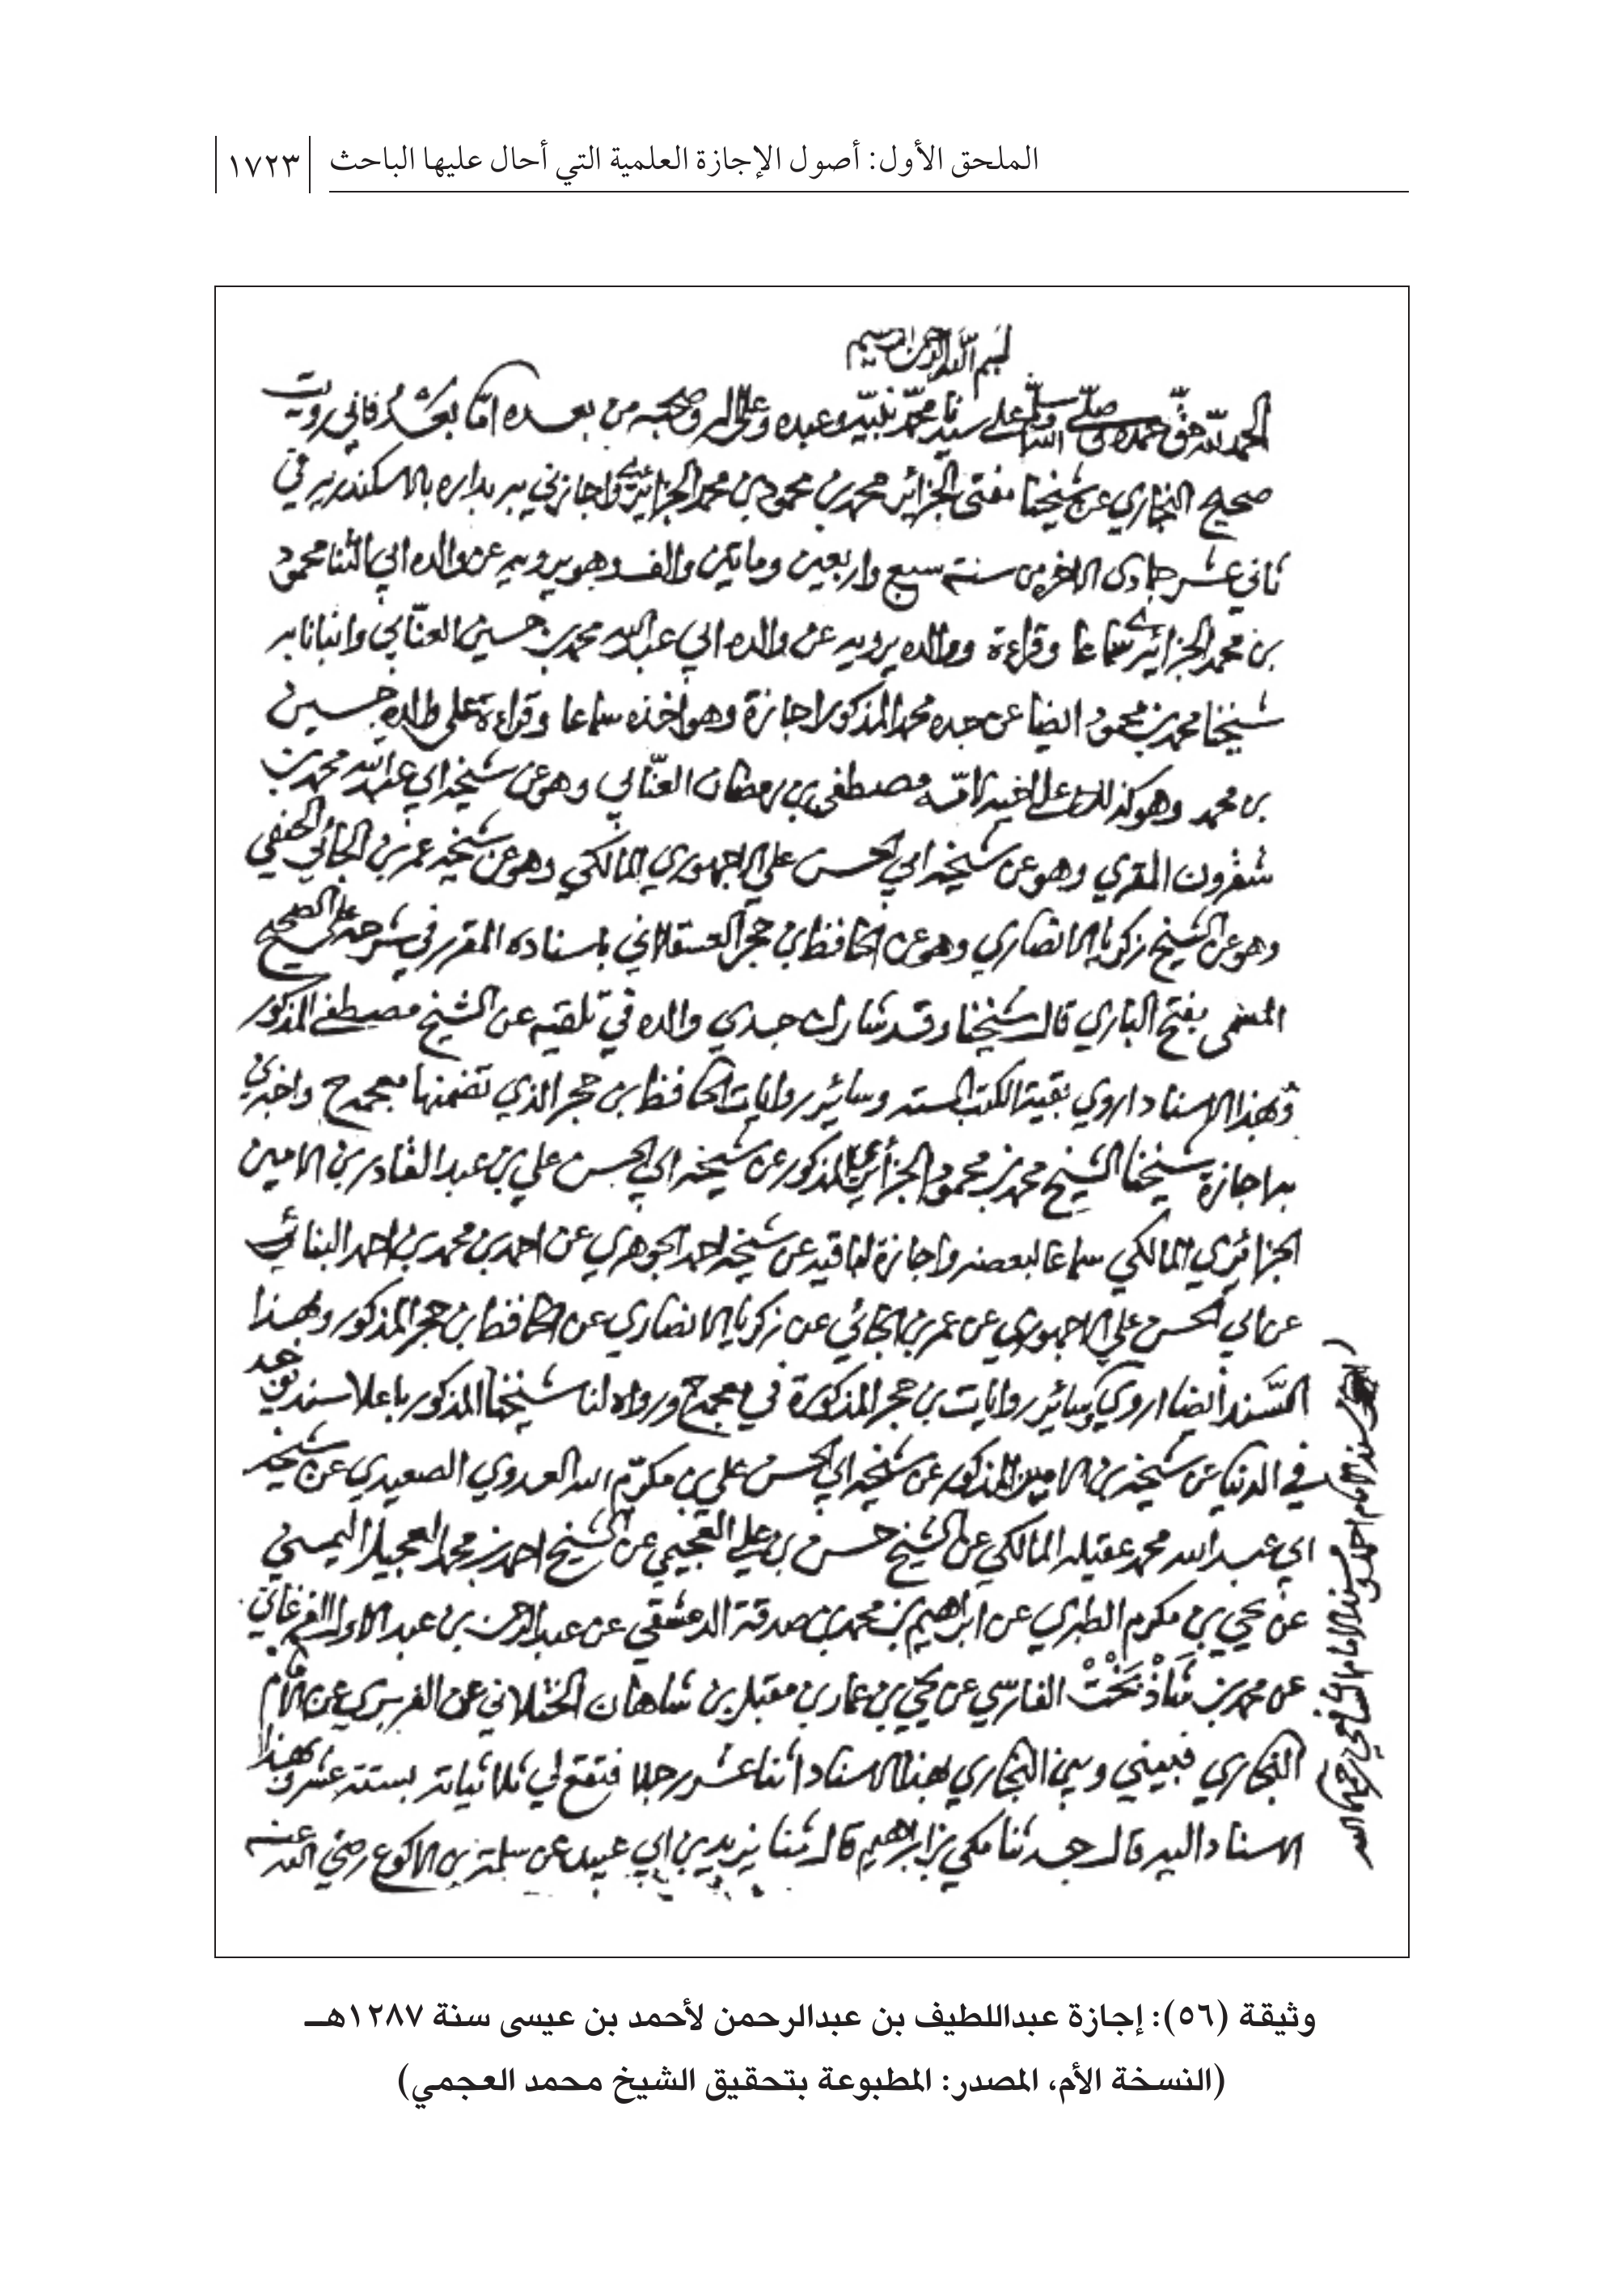 الملحق الأول: أصول الإجازة العلمية التي أحال عليها الباحث
١٧٢٣
بسم الله الرحمن الرحيم
الحمد لله حق حمده وصلى الله وسلم على سيدنا محمد نبيه وعبده وعلى اله وصحبه من بعده اما بعد فاني رويت
صحيح البخاري عن شيخنا مفتى الجزائر محمد بن محمود بن محمد الجزائري واجازني به بداره بالاسكندريه في
ثاني عشر جمادى الاخره من سنة سبع واربعين ومايتين والف وهو يرويه عن والده ابي الثنا محمود
بن محمد الجزائري سماعا وقراءة ووالده يرويه عن والده ابي عبد الله محمد بن حسين العنابي وانبانا به
شيخنا محمد بن محمود ايضا عن جده محمد المذكور اجازة وهو اخذه سماعا وقراءة على والده حسين
بن محمد وهو كذلك على اخيه لامه مصطفى بن رمضان العنابي وهو عن شيخه ابي عبد الله محمد بن
شقرون المقري وهو عن شيخه ابي الحسن علي الاجهوري المالكي وهو عن شيخه عمر بن الجائي الحنفي
وهو عن الشيخ زكريا الانصاري وهو عن الحافظ بن حجر العسقلاني باسناده المقرر في شرحه على الصحيح
المسمى بفتح الباري قال شيخنا وقد شارك جدي والده في تلقيه عن الشيخ مصطفى المذكور
وبهذا الاسناد اروي بقية الكتب السته وسائر روايات الحافظ بن حجر الذي تضمنها معجمه ح واخبرني
به اجازة شيخنا الشيخ محمد بن محمود الجزائري المذكور عن شيخه ابي الحسن علي بن عبد القادر بن الامين
الجزائري المالكي سماعا لبعضه واجازة لباقيه عن شيخه احمد الجوهري عن احمد بن محمد بن احمد البنائي
عن ابي الحسن علي الاجهوري عن عمر بن الجائي عن زكريا الانصاري عن الحافظ بن حجر المذكور وبهذا
السند ايضا اروي سائر روايات بن حجر المذكورة في معجمه ح ورواه لنا شيخنا المذكور باعلا سند يوجد
في الدنيا عن شيخه بن الامين المذكور عن شيخه ابي الحسن علي بن مكرم الله العدوي الصعيدي عن شيخه
ابي عبد الله محمد عقيله المالكي عن الشيخ حسن بن علي العجيمي عن الشيخ احمد بن محمد العجيل اليمني
عن يحيى بن مكرم الطبري عن ابراهيم بن محمد بن صدقة الدمشقي عن عبد الرحمن بن عبد الاول الفرغاني
عن محمد بن شاذبخت الفارسي عن يحيى بن عمار بن مقبل بن شاهان الختلاني عن الفربري عن الامام
البخاري فبيني وبين البخاري بهذا الاسناد اثنا عشر رجلا فتقع لي ثلاثياته بستة عشر وبهذا
الاسناد اليه قال حدثنا مكي بن ابراهيم قال ثنا يزيد بن ابي عبيد عن سلمة بن الاكوع رضي الله عنه
سند الامام احمد وسند الامام الشافعي رحمهما الله
وثيقة (٥٦): إجازة عبداللطيف بن عبدالرحمن لأحمد بن عيسى سنة ١٢٨٧هـ
(النسخة الأم، المصدر: المطبوعة بتحقيق الشيخ محمد العجمي)